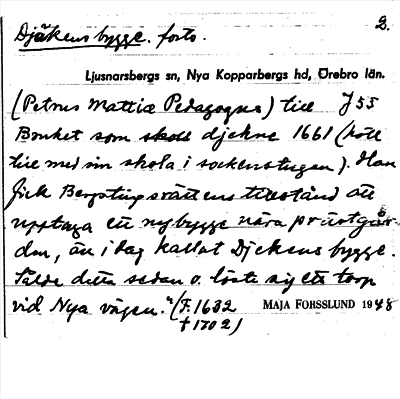 2.
Djäkens bygge. forts.
Ljusnarsbergs sn, Nya Kopparbergs hd, Örebro län.
(Petrus Mattiæ Pedagogus) till J 55
Bonket som djekne 1661 (höll
till med sin skola i sockenstugan). Han
fick Bergstingsrättens tillstånd att
upptaga ett nybygge nära prästgår-
den, än i dag kallat Djekens bygge.
Sålde detta sedan o. löste sig ett torp
vid Nya vägen." (F. 1632
† 1702)
MAJA FORSSLUND 1948